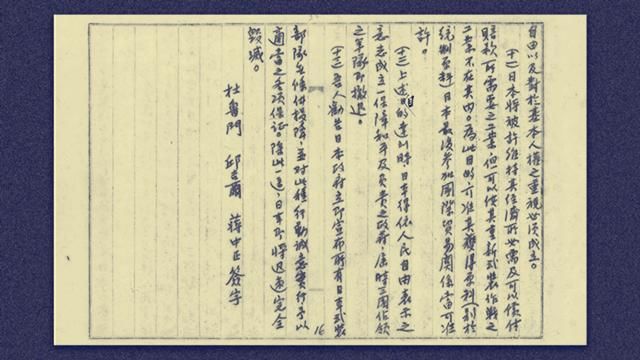 自由以及對於基本人權之重視必須成立。
(十一)日本將被許維持其經濟所必需及可以償付
賠款所需要之工業,但可以使其重新武裝作戰之
工業不在其內。為此目的,可准其獲得原料(別於
統制原料)日本最後參加國際貿易關係當可准
許。
(十二)上述目的達到時,日本得依人民自由表示之
意志成立一保障和平及負責之政府,屆時三國佔領
之軍隊即撤退。
(十三)吾人勸告日本政府立即宣布所有日本武裝
部隊無條件投降,並對此種行動誠意實行予以
適當之各項保證。除此一途,日本即將迅速完全
毀滅。
杜魯門 邱吉爾 蔣中正 簽字
16